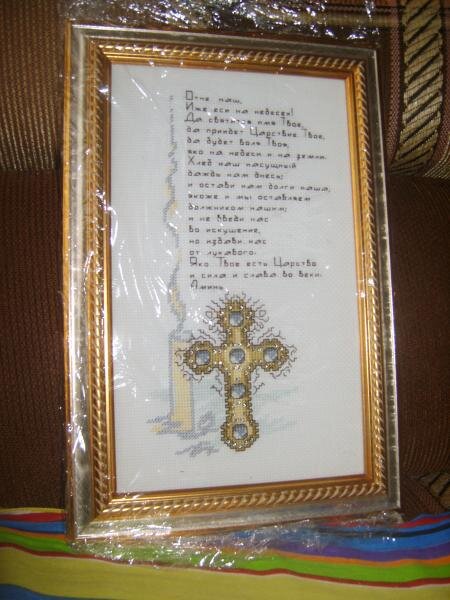 Отче наш,
Иже еси на небесех!
Да святится имя Твое,
да приидет Царствие Твое,
да будет воля Твоя,
яко на небеси и на земли.
Хлеб наш насущный
даждь нам днесь;
и остави нам долги наша,
якоже и мы оставляем
должником нашим;
и не введи нас
во искушение,
но избави нас
от лукаваго.
Яко Твое есть Царство
и сила и слава во веки.
Аминь